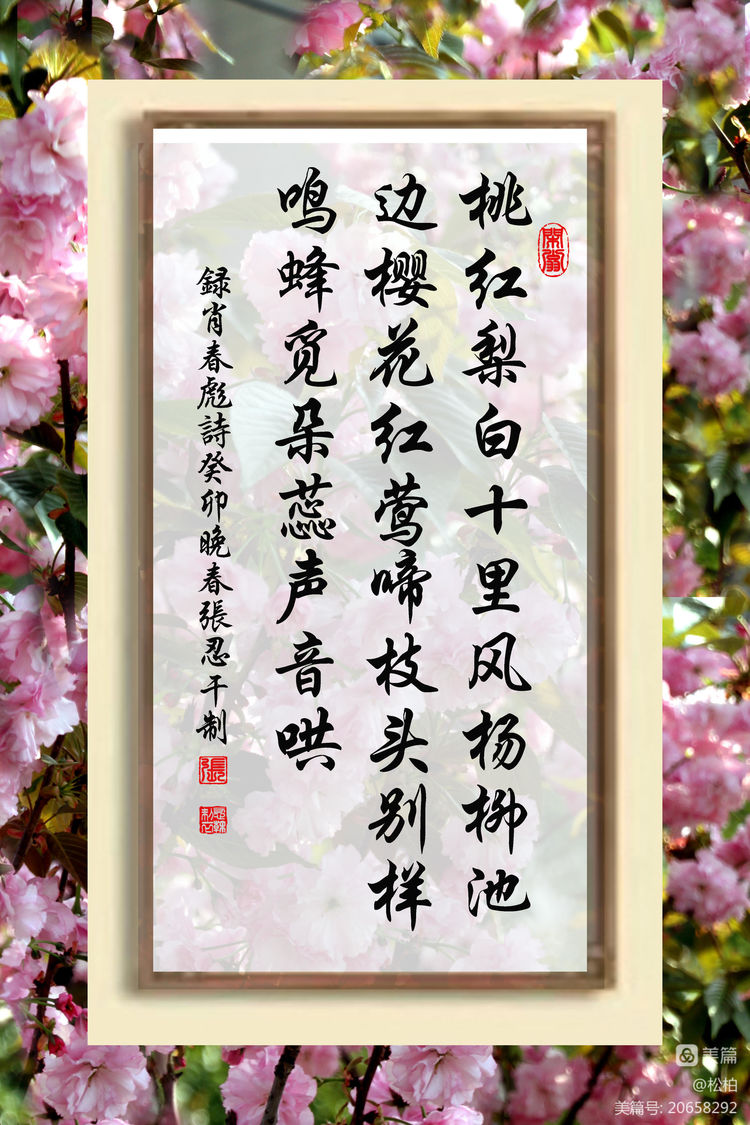 桃红梨白十里风杨柳池
边樱花红莺啼枝头别样
鸣蜂觅朵蕊声音哄
録肖春彪詩癸卯晚春張忍干制
張
美篇
@松柏
美篇号: 20658292